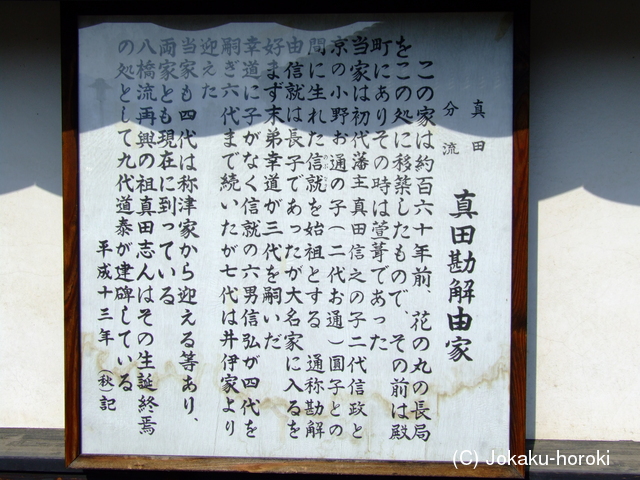 真田分流
真田勘解由家
この家は約百六十年前、花の丸の長局
をこの処に移築したもので、その前は殿
町にありその時は萱葺であった
当家は初代藩主真田信之の子二代信政と
京の小野お通の子(二代お通)圓子との
間に生れた信就を始祖とする 通称勘解
由 信就は長子であったが大名家に入るを
好まず末弟幸道が三代を嗣いだ
幸道に子がなく信就の六男信弘が四代を
嗣ぎ六代まで続いたが七代は井伊家より
迎えた
当家も四代は称津家から迎える等あり、
両家とも現在に到っている
八橋流再興の祖真田志んはその生誕終焉
の処として九代道泰が建碑している
平成十三年(秋)記
(C) Jokaku-horoki